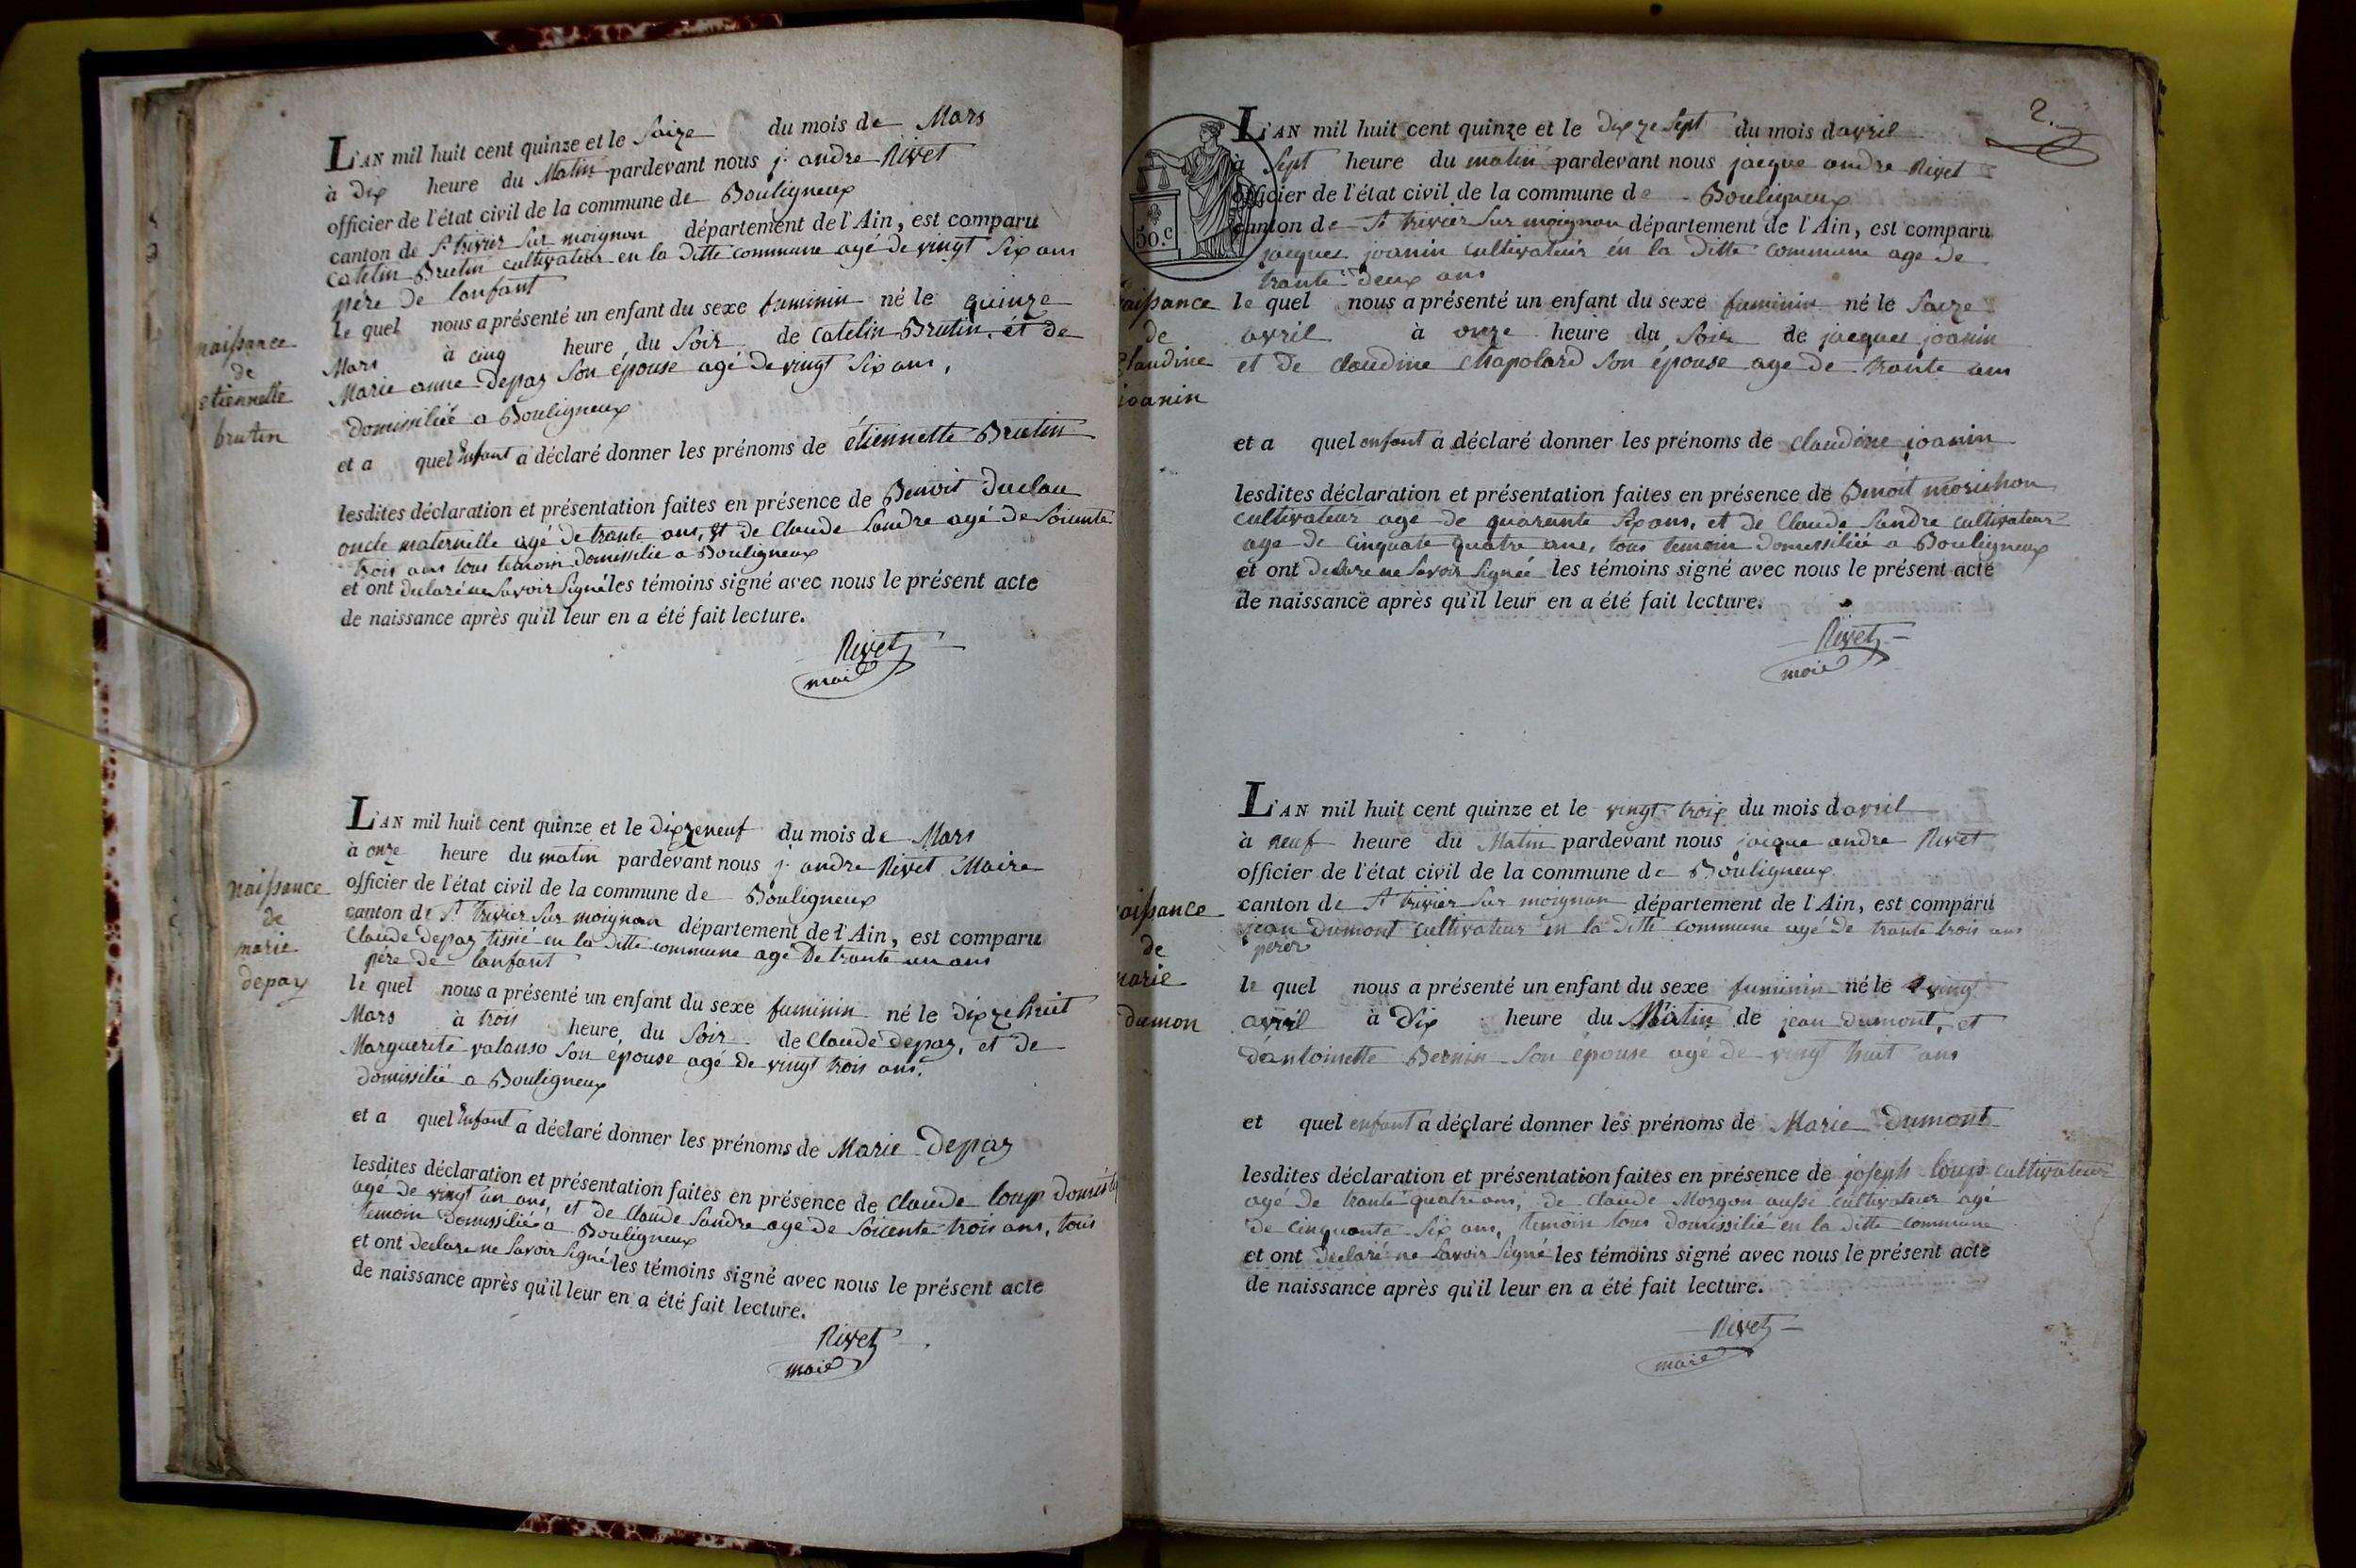 L'AN mil huit cent quinze et le Saize du mois de Mars
à dix heure du Matin pardevant nous j. andre Rivet
officier de l'état civil de la commune de Bouligneux
canton de St trivier Sur moignan département de l'Ain, est comparu
Catelin Brutin cultivateur en la ditte commune agé de vingt Six ans
père de lanfant
le quel nous a présenté un enfant du sexe faminin né le quinze
Mars à cinq heure du Soir de Catelin Brutin, et de
Marie anne Depaz Son épouse agé de vingt Six ans,
domissilié a Bouligneux
et a quel Enfant a déclaré donner les prénoms de étiennette Brutin
lesdites déclaration et présentation faites en présence de Benoit Duclau
oncle maternelle agé de trante ans, et de Claude Sandre agé de Soicente
trois ans tous temoin domissilie a Bouligneux
et ont declaré ne Savoir Signé les témoins signé avec nous le présent acte
de naissance après qu'il leur en a été fait lecture.
Rivet
maire
naissance
de
etiennette
brutin
L'AN mil huit cent quinze et le dixzeneuf du mois de Mars
à onze heure du matin pardevant nous j. andre Rivet Maire
officier de l'état civil de la commune de Bouligneux
canton de St trivier Sur moignan département de l'Ain, est comparu
Claude depaz tissié en la ditte commune agé De trante un ans
père de lanfant
le quel nous a présenté un enfant du sexe faminin né le dixze huit
Mars à trois heure du Soir de Claude depaz, et de
Marguerite valanso Son épouse agé de vingt trois ans.
domissilié a Bouligneux
et a quel Enfant a déclaré donner les prénoms de Marie Depaz
lesdites déclaration et présentation faites en présence de Claude loup
agé de vingt un ans, et de Claude Sandre age de Soicente trois ans, tous
temoin domissilié a Bouligneux
et ont declare ne Savoir Signé les témoins signé avec nous le présent acte
de naissance après qu'il leur en a été fait lecture.
Rivet
maire
naissance
de
marie
depaz
2.
L'AN mil huit cent quinze et le dixze Sept du mois davril
à Sept heure du matin pardevant nous jacque andre Rivet
officier de l'état civil de la commune de Bouligneux
canton de St trivier Sur moignan département de l'Ain, est comparu
jacques joanin cultivateur en la ditte commune age de
trante deux ans
le quel nous a présenté un enfant du sexe faminin né le Saize
avril à onze heure du Soir de jacques joanin
et de Claudine Chapolard Son épouse age de trante ans
et a quel enfant a déclaré donner les prénoms de Claudine joanin
lesdites déclaration et présentation faites en présence de Benoit morichon
cultivateur age de quarante Six ans, et de Claude Sandre cultivateur
age de cinquate quatre ans, tous temoin domissilié a Bouligneux
et ont declare ne Savoir Signé les témoins signé avec nous le présent acte
de naissance après qu'il leur en a été fait lecture.
Rivet
maire
50.c
naissance
de
Claudine
joanin
L'AN mil huit cent quinze et le vingt troix du mois davril
à neuf heure du Matin pardevant nous jacque andre Rivet
officier de l'état civil de la commune de Bouligneux
canton de St trivier Sur moignan département de l'Ain, est comparu
jean dumont cultivateur en la ditte commune agé de trante trois ans
père
le quel nous a présenté un enfant du sexe faminin né le vingt
avril à Dix heure du Matin de jean dumont, et
d'antoinette Bernin Son épouse agé de vingt huit ans
et quel enfant a déclaré donner les prénoms de Marie Dumont
lesdites déclaration et présentation faites en présence de joseph loup cultivateur
agé de trante quatre ans, de Claude Morgon aussi cultivateur agé
de cinquante Six ans, temoin tous domissilié en la ditte commune
et ont declaré ne Savoir Signé les témoins signé avec nous le présent acte
de naissance après qu'il leur en a été fait lecture.
Rivet
maire
naissance
de
marie
dumon